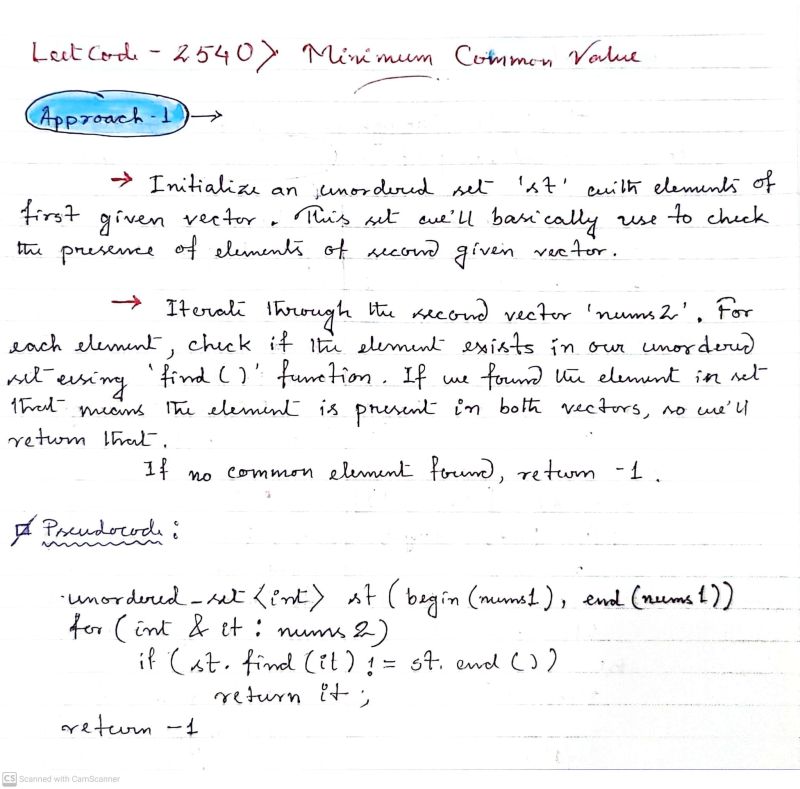 LeetCode - 2540> Minimum Common Value
Approach-1 →
→ Initialize an unordered set 'st' with elements of
first given vector. This set we'll basically use to check
the presence of elements of second given vector.
→ Iterate through the second vector 'nums2'. For
each element, check if the element exists in our unordered
set using 'find()' function. If we found the element in set
that means the element is present in both vectors, so we'll
return that.
If no common element found, return -1.
Pseudocode:
unordered_set <int> st (begin (nums1), end (nums1))
for (int & it : nums2)
if (st. find (it) != st. end ())
return it ;
return -1
CS Scanned with CamScanner